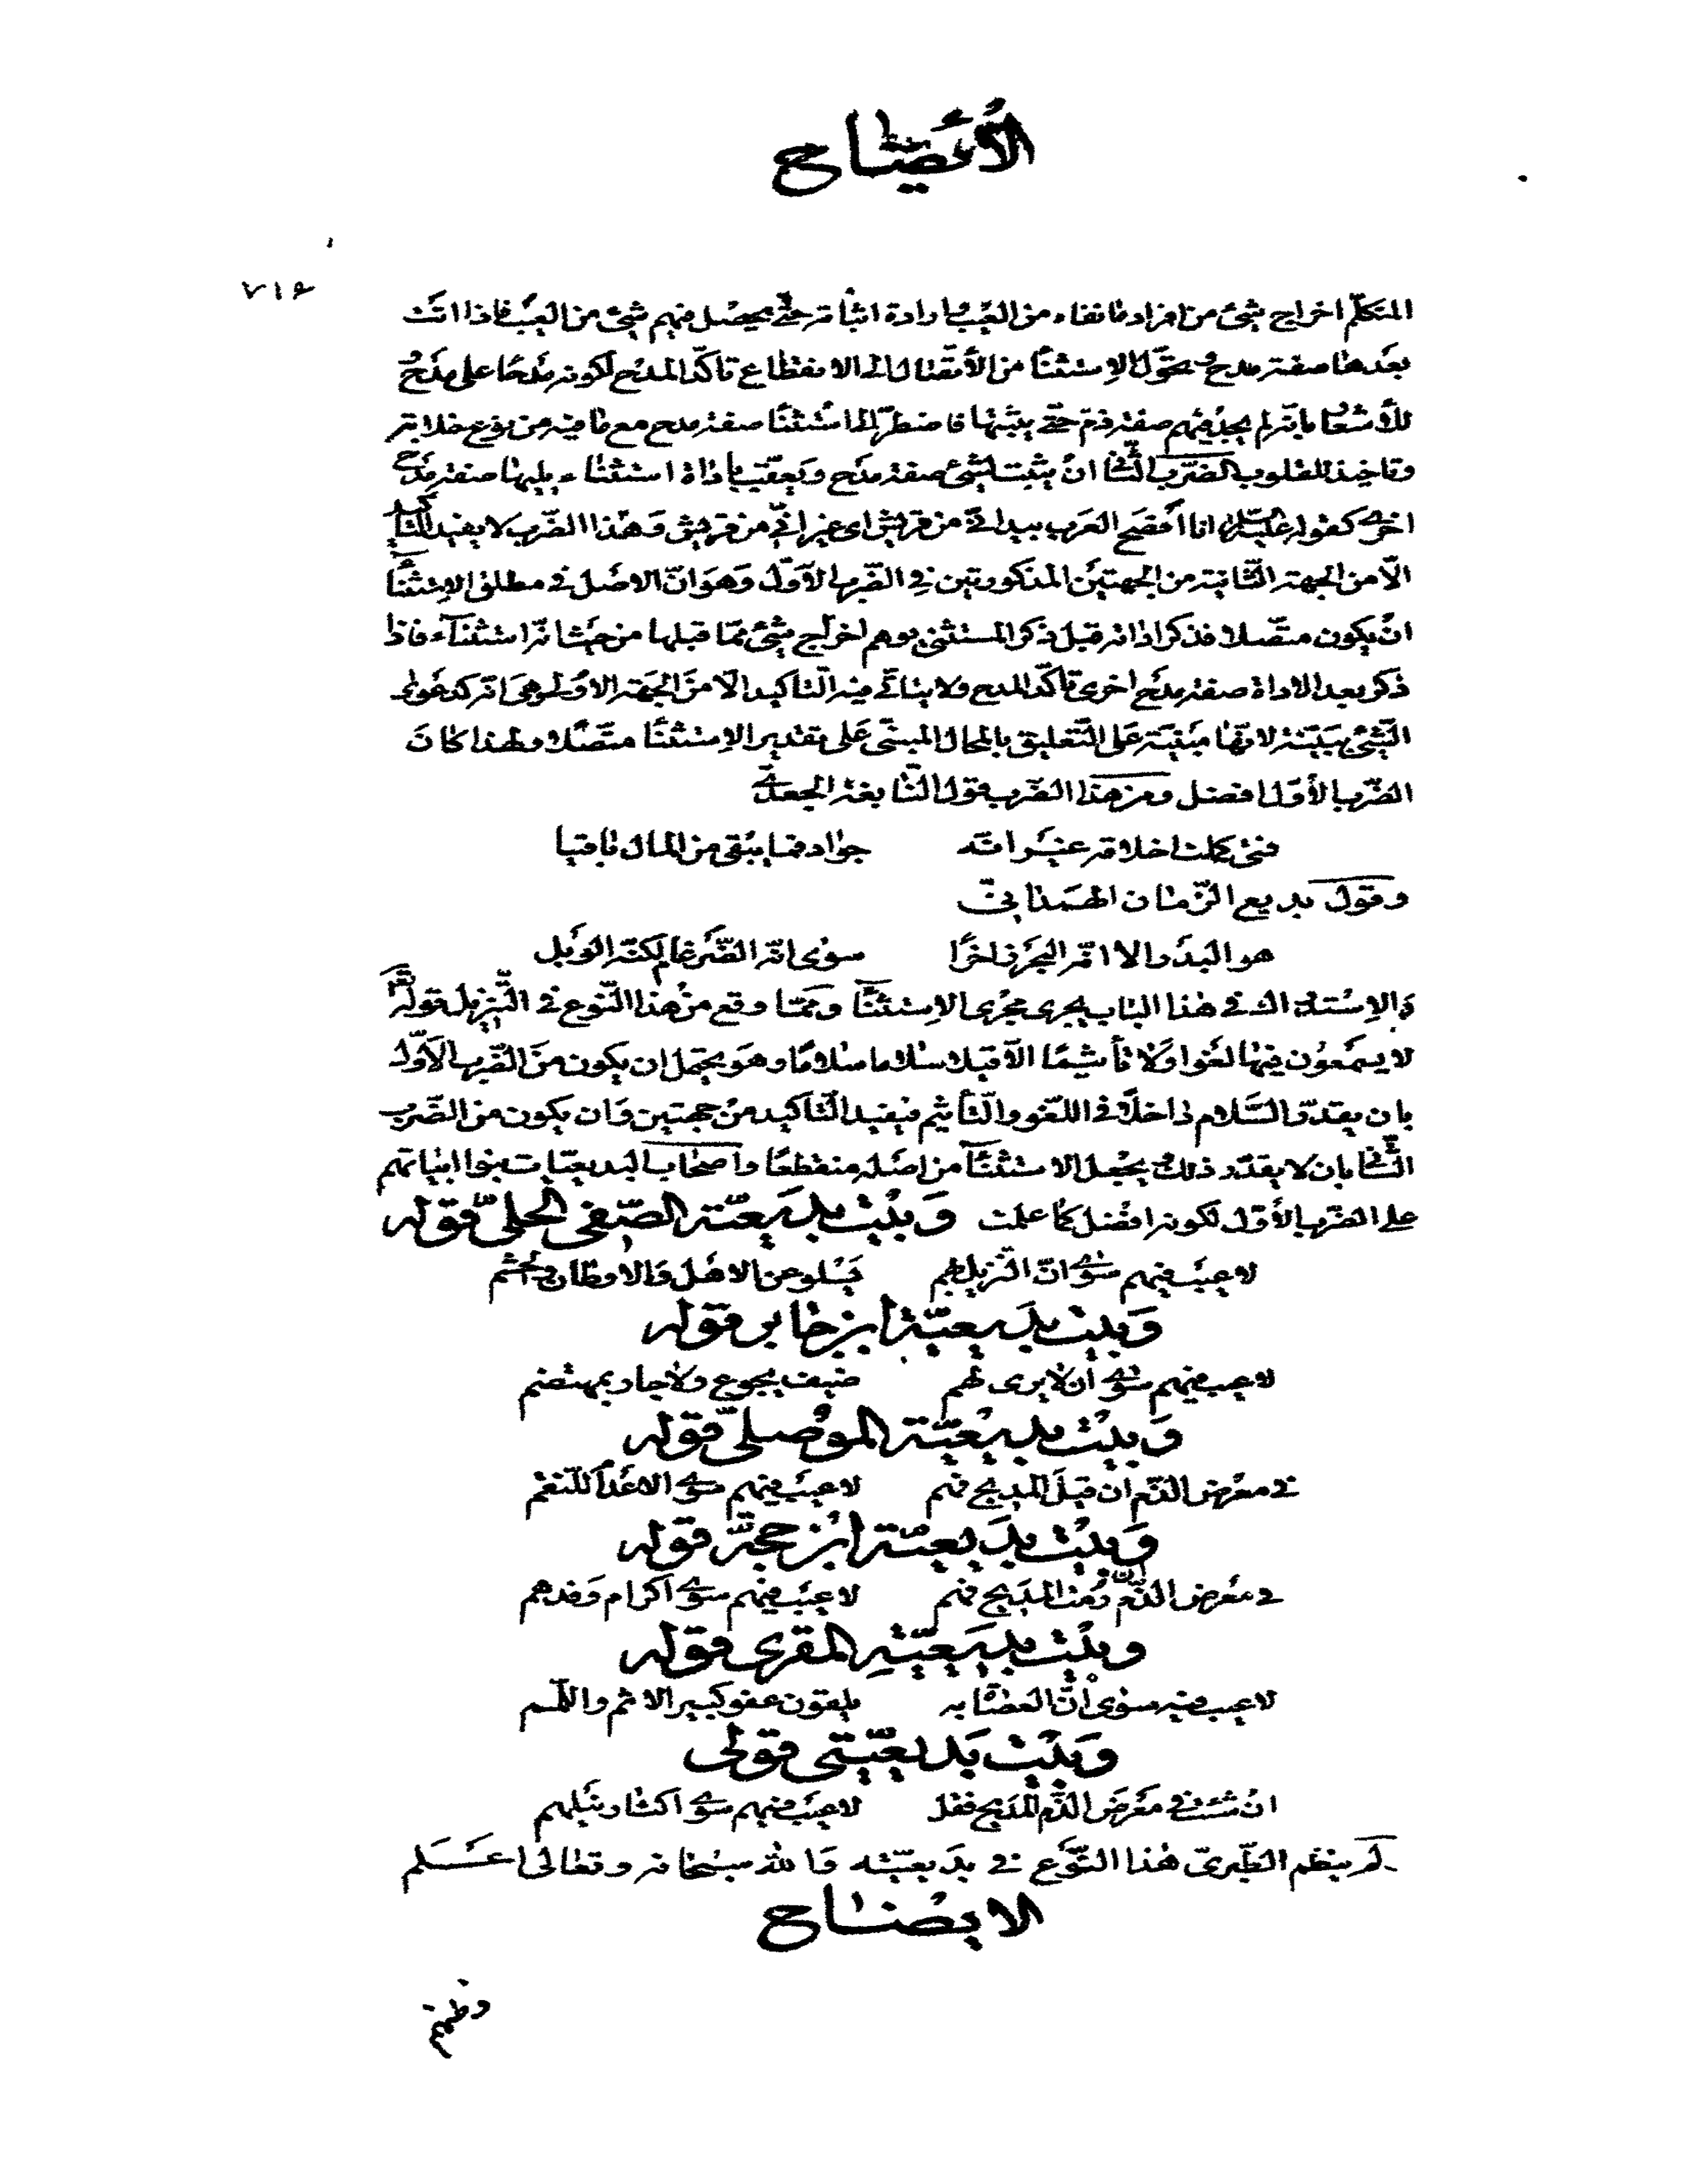 الايضاح
٧١۶
المتكلّم اخراج شئ من افراد ما نفاه من العيب بارادة اثباته حتّى يحصل فيهم شئ من العيب فاذا اتت
بعدها صفة مدح تحوّل الاستثنآ من الاتّصال الى الانقطاع تاكّد المدح لكونه مدحًا على مدح
للأشعار بانّه لم يجد فيهم صفة ذم حتى يثبتها فاضطرّ الى استثنآ صفة مدح مع ما فيه من نوع خلابة
وتاخيذ للقلوب الضرب الثّانى ان يثبت لشئ صفة مدح ويعقّب باداة استثناء يليها صفة مدح
اخرى كقوله عليه السلام انا افصح العرب بيد انّى من قريش اى غير انّى من قريش وهذا الضّرب لا يفيد التّاكيد
الّا من الجهة الثّانية من الجهتين المذكورتين فى الضّرب الاوّل وهو انّ الاصل فى مطلق الاستثنآ
ان يكون متّصلا فذكر اداته قبل ذكر المستثنى يوهم اخراج شئ ممّا قبلها من حيث انّه استثنآء فاذا
ذكر بعد الاداة صفة مدح اخرى تاكّد المدح ولا يتاتّى فيه التّاكيد الّا من الجهة الاولى وهى انّه كدعوى
الشّئ ببيّنة لانّها مبنيّة على التّعليق بالمحال المبنى على تقدير الاستثنآ متّصلا ولهذا كان
الضّرب الأوّل افضل ومن هذا الضّرب قول النّابغة الجعدى
فتى كملت اخلاقه غير انّه جواد فما يبقى من المال باقيا
وقول بديع الزّمان الهمذانىّ
هو البدر الا انّه البحر زاخرًا سوى انّه الضّرغام لكنّه الوبل
والاستدراك فى هذا الباب يجرى مجرى الاستثنآ وممّا وقع من هذا النّوع فى التّنزيل قوله تعالى
لا يسمعون فيها لغوا ولا تأثيمًا الّا قيلا سلاما سلامًا وهو يحتمل ان يكون من الضّرب الاوّل
بان يقدّر السّلام داخلًا فى اللغو والتّأثيم فيفيد التّاكيد من جهتين وان يكون من الضّرب
الثّانى بان لا يقدّر ذلك بجعل الاستثنآ من اصله منقطعًا واصحاب البديعيّات بنوا ابياتهم
على الضّرب الأوّل لكونه افضل كما علمت وبيت بديعيّة الصّفى الحلىّ قوله
لا عيب فيهم سوى انّ النّزيل بهم يسلو عن الاهل والاوطان والحشم
وبيت بديعيّة ابن جابر قوله
لا عيب فيهم سوى ان لا يرى لهم ضيف يجوع ولا جار بمهتضم
وبيت بديعيّة الموصلىّ قوله
فى معرض الذّم ان قيل المديح فهم لا عيب فيهم سوى الاعدآ للنّعم
وبيت بديعيّة ابن حجّة قوله
فى معرض الذّم ان رمت المديح فهم لا عيب فيهم سوى اكرام وفدهم
وبيت بديعيّة المقرى قوله
لا عيب فيه سوى انّ العصاة به يلقون عفو كبير الاثم واللّمم
وبيت بديعيّتى قولى
ان شئت فى معرض الذّم المديح فقل لا عيب فيهم سوى اكثار نيلهم
لم ينظم الطّبرىّ هذا النّوع فى بديعيّته والله سبحانه وتعالى اعلم
الايضاح